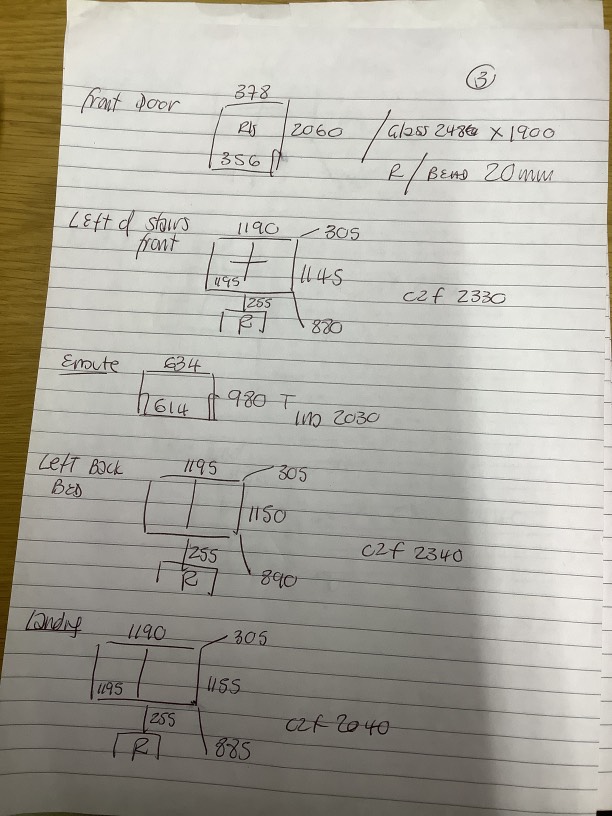 3
front Door
378
R/s
2060
356
Glass 248 x 1900
R / BEAD 20mm
Left of stairs
front
1190
305
1195
1145
255
R
880
C2f 2330
Enroute
634
614
980 T
2030
Left Back
BED
1195
305
1150
255
R
890
C2f 2340
Landing
1190
305
1195
1155
255
R
885
C2f 2040